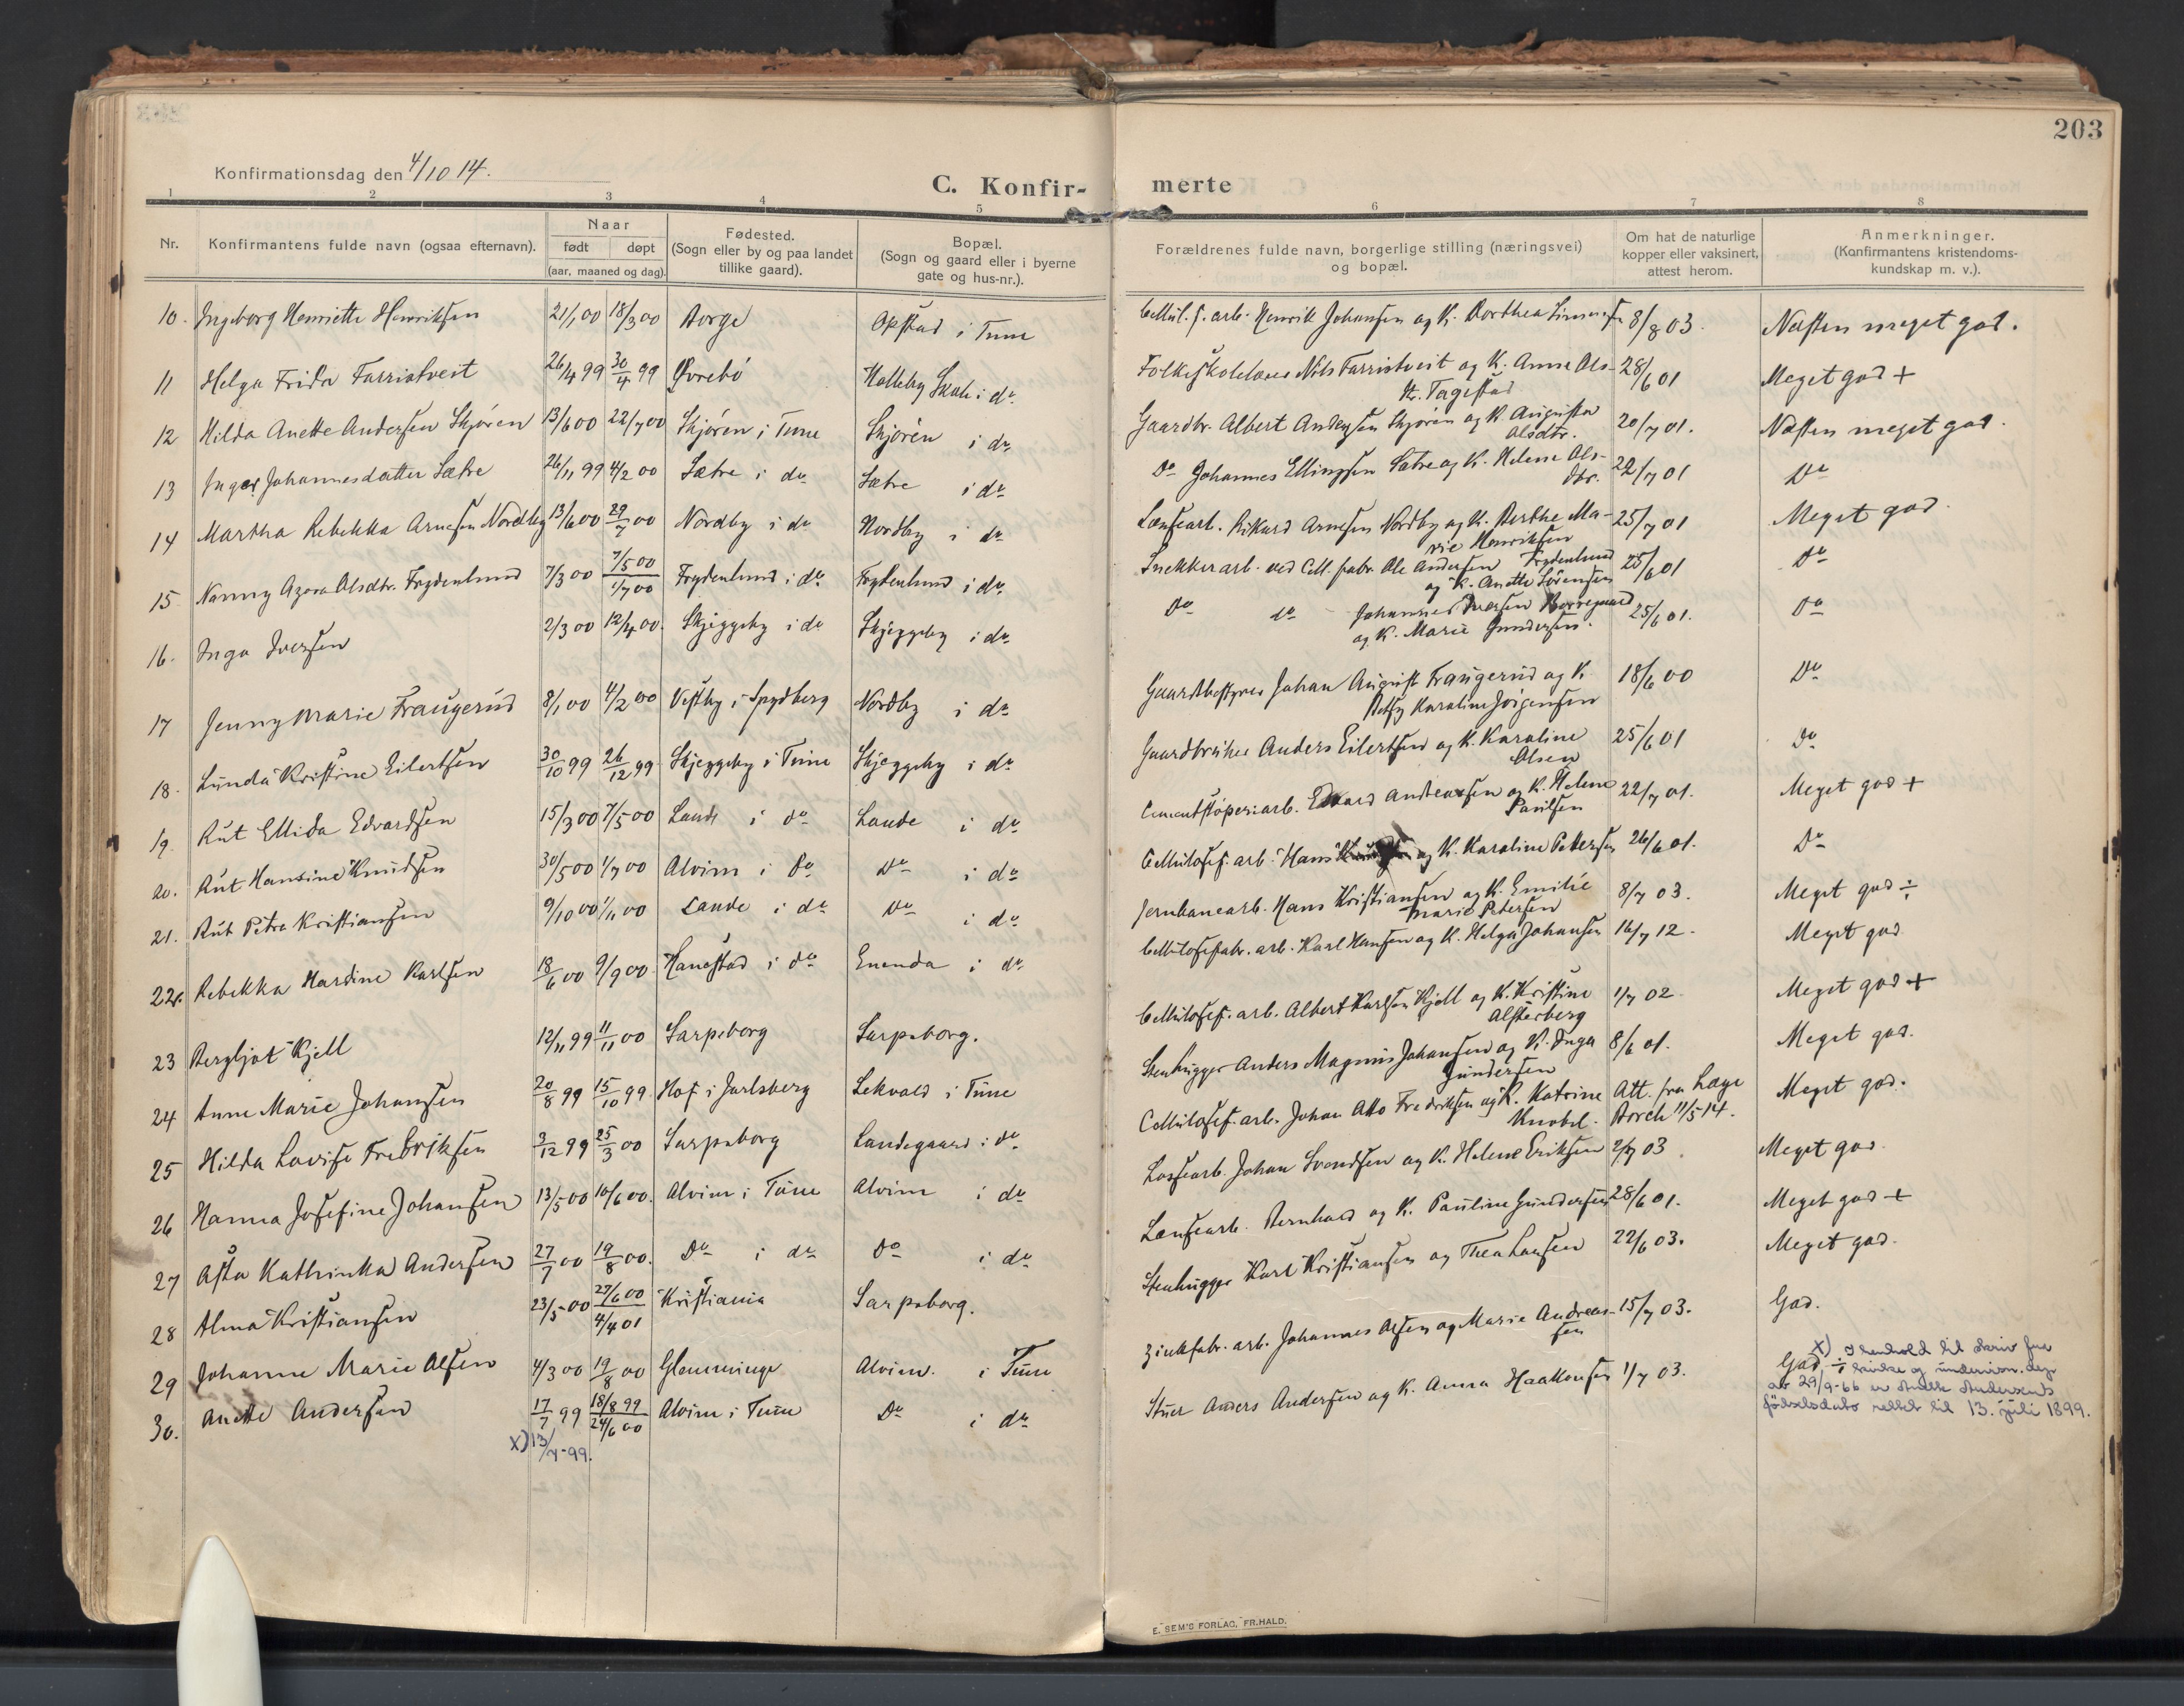 203
Konfirmationsdag den 4/10 14.
C. Konfir- merte
1 2 3 4 5 6 7 8
Nr. Konfirmantens fulde navn (ogsaa efternavn). Naar født døpt (aar, maaned og dag). Fødested. (Sogn eller by og paa landet tillike gaard). Bopæl. (Sogn og gaard eller i byerne gate og hus-nr.). Forældrenes fulde navn, borgerlige stilling (næringsvei) og bopæl. Om hat de naturlige kopper eller vaksinert, attest herom. Anmerkninger. (Konfirmantens kristendoms- kundskap m. v.).
10. Ingeborg Henriette Henriksen 21/1 00 18/3 00 Borge Opstad i Tune Cellul. f. arb. Henrik Johansen og K. Dorthea Simensen 8/8 03. Næsten meget god.
11 Helga Frida Farristveit 26/4 99 30/4 99 Øvrebö Halleby Skole i do Folkeskolelærer Nils Farristveit og K. Anna Ols- 28/6 01 Meget god +
dr. Tagestad
12 Hilda Anette Andersen Skjören 13/6 00 22/7 00 Skjören i Tune Skjören i do Gaardbr. Albert Andersen Skjören og K. Augusta 20/7 01. Næsten meget god.
Olsdtr.
13 Inger Johannesdatter Sætre 26/11 99 4/2 00 Sætre i do Sætre i do Do Johannes Ellingsen Sætre og K. Helene Ols- 22/7 01 Do
dtr.
14 Martha Rebekka Arnesen Nordby 13/6 00 29/7 00 Nordby i do Nordby i do Lænsearb. Rikard Arnesen Nordby og K. Berthe Ma- 25/7 01 Meget god.
rie Henriksen
15 Nanny Azora Olsdtr. Frydenlund 7/3 00 7/5 00 1/7 00 Frydenlund i do Frydenlund i do Snekkerarb. ved Cell. fabr. Ole Andersen Frydenlund 25/6 01 Do
og K. Anette Sörensen
16. Inga Iversen 2/3 00 12/4 00. Skjeggeby i do Skjeggeby i do Do do Johannes Iversen Borregaard 25/6 01. Do
og K. Marie Gundersen.
17 Jenny Marie Fraugerud 8/1 00 4/2 00 Vestby i Spydberg Nordby i do Gaardbestyrer Johan August Fraugerud og K. 18/6 00 Do
Betsy Karoline Jörgensen
18. Lunda Kristine Eilertsen 30/10 99 26/12 99 Skjeggeby i Tune Skjeggeby i do Gaardbruker Anders Eilertsen og K. Karoline 25/6 01 Do
Olsen
19. Rut Ellida Edvardsen 15/3 00 7/5 00 Lande i do Lande i do Cementstöperiarb. Edvard Andreassen og K. Helene 22/7 01. Meget god +
Paulsen
20. Rut Hansine Knudsen 30/5 00 1/7 00 Alvim i do Do i do Cellulosef. arb. Hans og K. Karoline Pettersen 26/6 01. Do
21. Rut Petra Kristiansen 9/10 00 1/11 00 Lande i do Do i do Jernbanearb. Hans Kristiansen og K. Emilie 8/7 03. Meget god ÷
Marie Petersen
22. Rebekka Hardine Karlsen 18/6 00 9/9 00. Hanestad i do Enenda i do Cellulosefabr. arb. Karl Hansen og K. Helga Johansen 16/7 12. Meget god
23 Bergljot Kjell 12/11 99 11/11 00 Sarpsborg Sarpsborg. Cellulosef. arb. Albert Karlsen Kjell og K. Kristine 1/7 02. Meget god +
Alsterberg
24 Anne Marie Johansen 20/8 99 15/10 99. Hof i Jarlsberg Lekvold i Tune Stenhugger Anders Magnus Johansen og K. Inga 8/6 01. Meget god.
Gundersen
25 Hilda Lovise Fredriksen 3/12 99 25/3 00 Sarpsborg Landegaard i do Cellulosef. arb. Johan Otto Fredriksen og K. Katrine Att. fra Læge Meget god.
Knobel. Borch 11/5 14.
26 Hanna Josefine Johansen 13/5 00 10/6 00. Alvim i Tune Alvim i do Lossearb. Johan Svendsen og K. Helene Eriksen 2/7 03 Meget god.
27 Asta Kathinka Andersen 27/7 00 19/8 00. Do i do Do i do Lænsearb. Bernhard og K. Pauline Gundersen 28/6 01. Meget god +
28 Alma Kristiansen 23/5 00 27/6 00 4/4 01 Kristiania Sarpsborg. Stenhugger Karl Kristiansen og Thea Larsen 22/6 03. Meget god.
29 Johanne Marie Olsen 4/3 00 19/8 00 Glemminge Alvim. i Tune Zinkfabr. arb. Johannes Olsen og Marie Andreas- 15/7 03. God.
sen
30. Anette Andersen 17/7 99 18/8 99 24/6 00 Alvim i Tune Do i do Stuer Anders Andersen og K. Anna Haakonsen 1/7 03. God ÷
x) 13/7-99.
x) I henhold til skriv fra
kirke og undervisn. dep.
av 29/9-66 er Anette Andersens
födselsdato rettet til 13. juli 1899.
E. SEM'S FORLAG, FR.HALD.